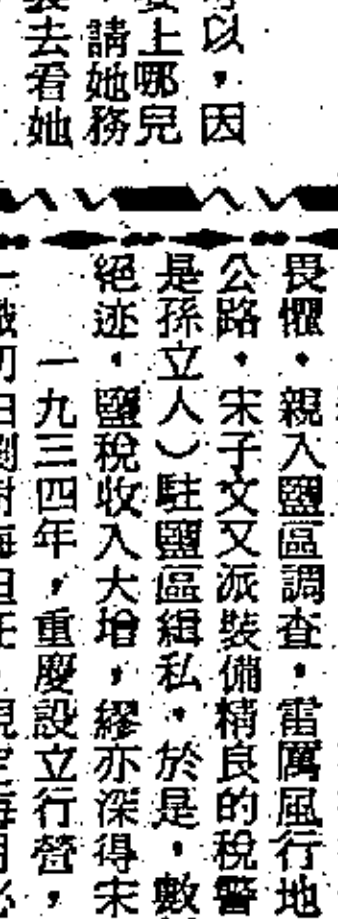 以，因
上哪兒
請她務
去看她
畏懼。親入鹽區調查，雷厲風行地
公路。宋子文又派裝備精良的稅警
是孫立人）駐鹽區緝私。於是，數
絕迹。鹽稅收入大增，繆亦深得宋
一九三四年，重慶設立行營，